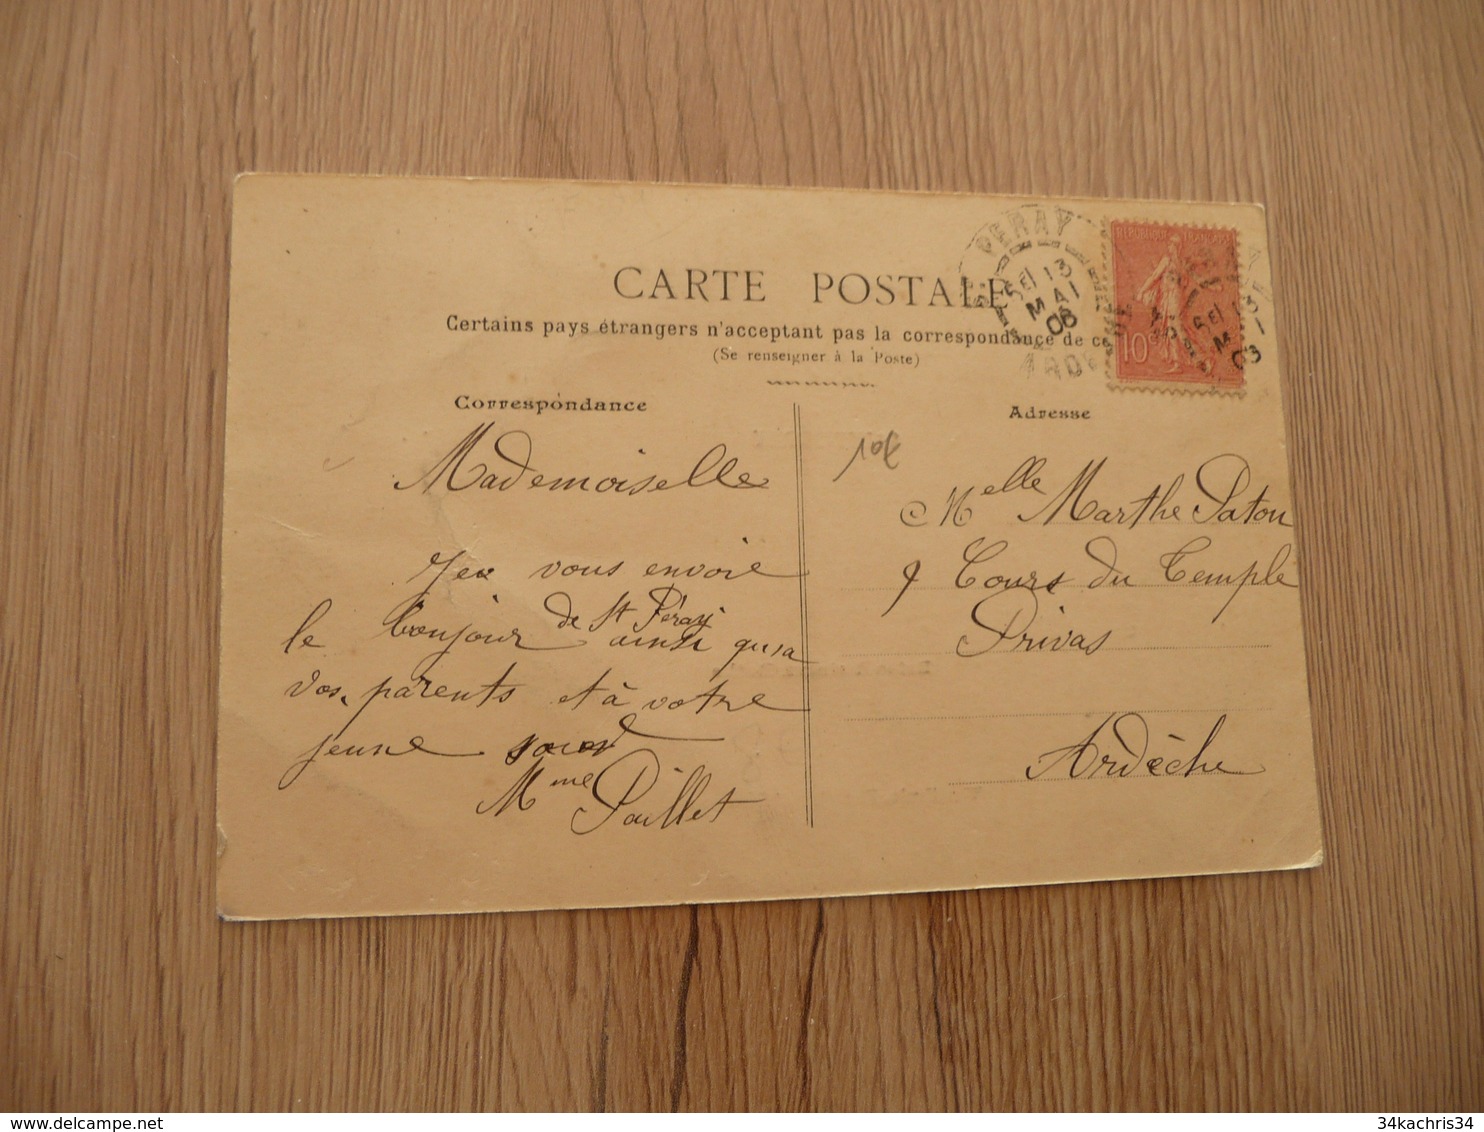 CARTE POSTALE
Certains pays étrangers n'acceptent pas la correspondance de ce
(Se renseigner à la Poste)
Correspondance
Adresse
PERAY
13
MAI
06
REPUBLIQUE FRANÇAISE
10c
10€
Mademoiselle
Je vous envoie
de St Péray
le bonjour ainsi qu'a
vos parents et à votre
jeune soeur
Mme Paillet
Melle Marthe Paton
9 Cours du Temple
Privas
Ardèche
34kachris34
delcampe.net